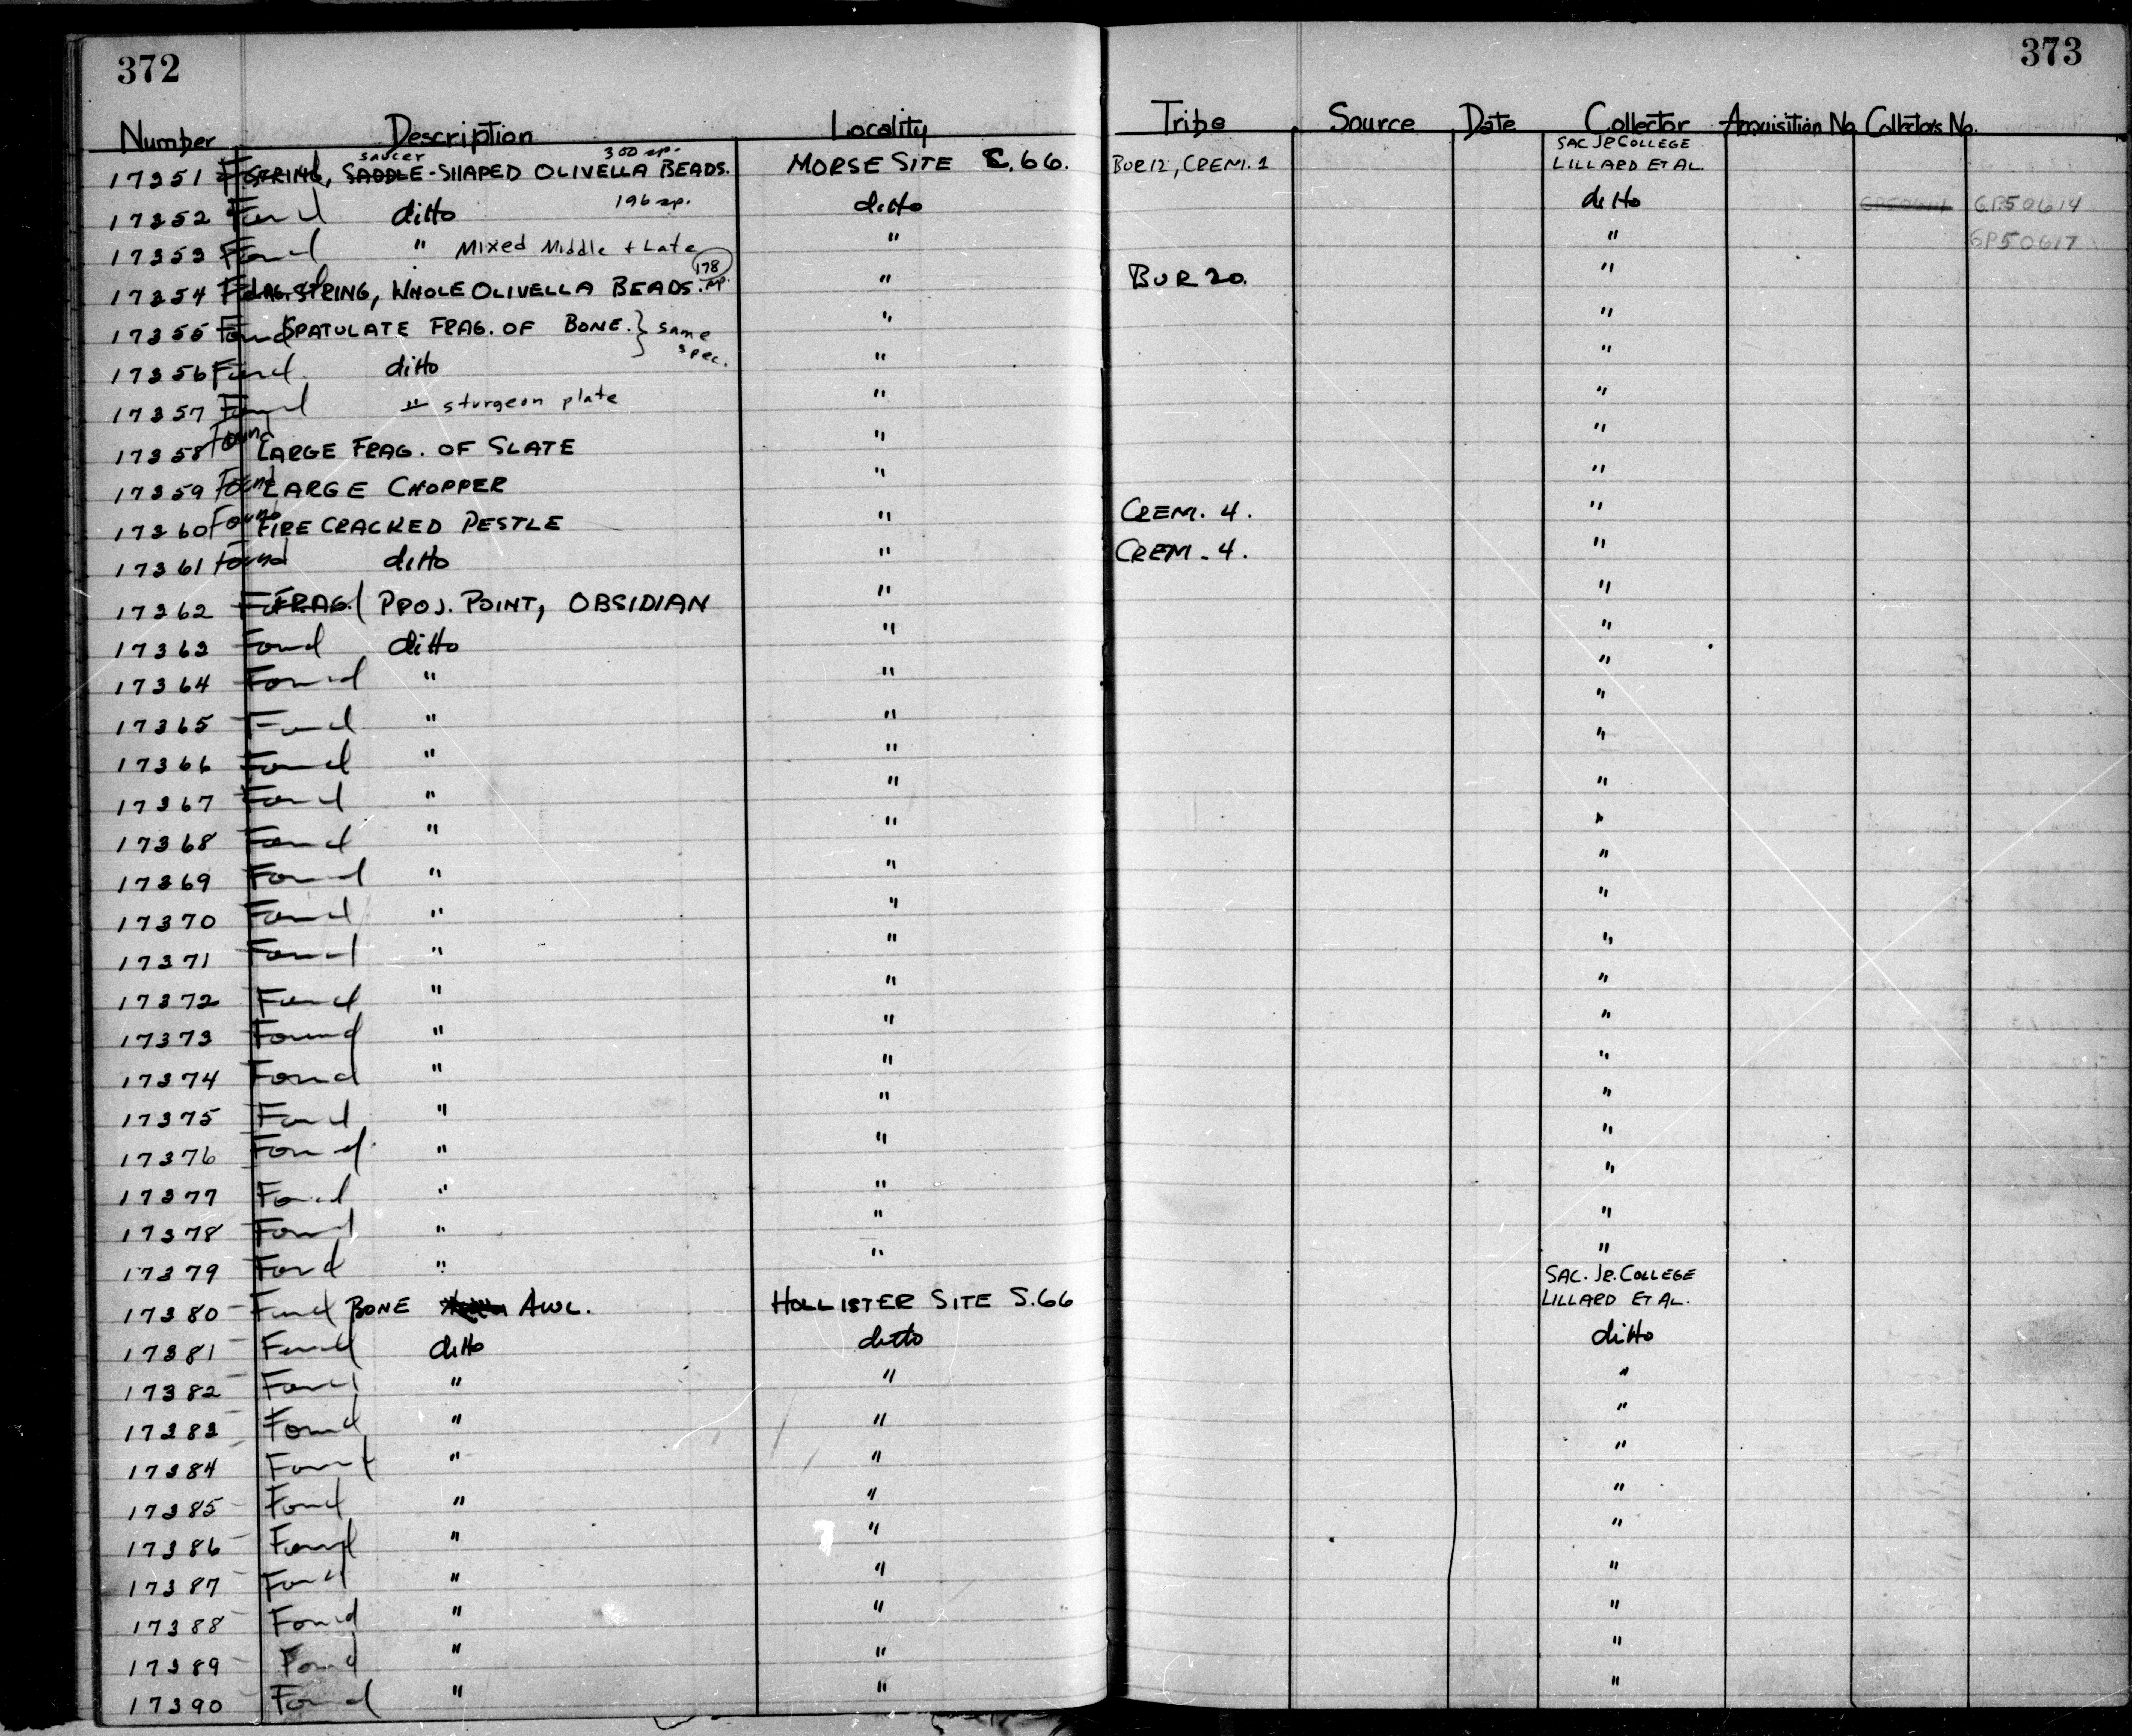 372 373
Number Description Locality Tribe Source Date Collector Acquisition No. Collectors No.
saucer 300 sp. SAC JR COLLEGE
17351 STRING, SADDLE-SHAPED OLIVELLA BEADS. MORSE SITE C.66. BUR 12, CREM. 1 LILLARD ET AL.
17352 Found ditto 196 sp. ditto ditto GP50614 GP50614
17353 Found " Mixed Middle + Late " " GP50617
17354 Found STRING, WHOLE OLIVELLA BEADS. 178 sp. " BUR 20. "
17355 Found SPATULATE FRAG. OF BONE. } same spec. " "
17356 Found ditto " "
17357 Found " sturgeon plate " "
17358 Found LARGE FRAG. OF SLATE " "
17359 Found LARGE CHOPPER " "
17360 Found FIRE CRACKED PESTLE " CREM. 4. "
17361 Found ditto " CREM. 4. "
17362 Found FRAG. PROJ. POINT, OBSIDIAN " "
17363 Found ditto " "
17364 Found " " "
17365 Found " " "
17366 Found " " "
17367 Found " " "
17368 Found " " "
17369 Found " " "
17370 Found " " "
17371 Found " " "
17372 Found " " "
17373 Found " " "
17374 Found " " "
17375 Found " " "
17376 Found " " "
17377 Found " " "
17378 Found " " "
17379 Found " " "
SAC. JR. COLLEGE
17380 Found BONE AWL. HOLLISTER SITE S.66 LILLARD ET AL.
17381 Found ditto ditto ditto
17382 Found " " "
17383 Found " " "
17384 Found " " "
17385 Found " " "
17386 Found " " "
17387 Found " " "
17388 Found " " "
17389 Found " " "
17390 Found " " "